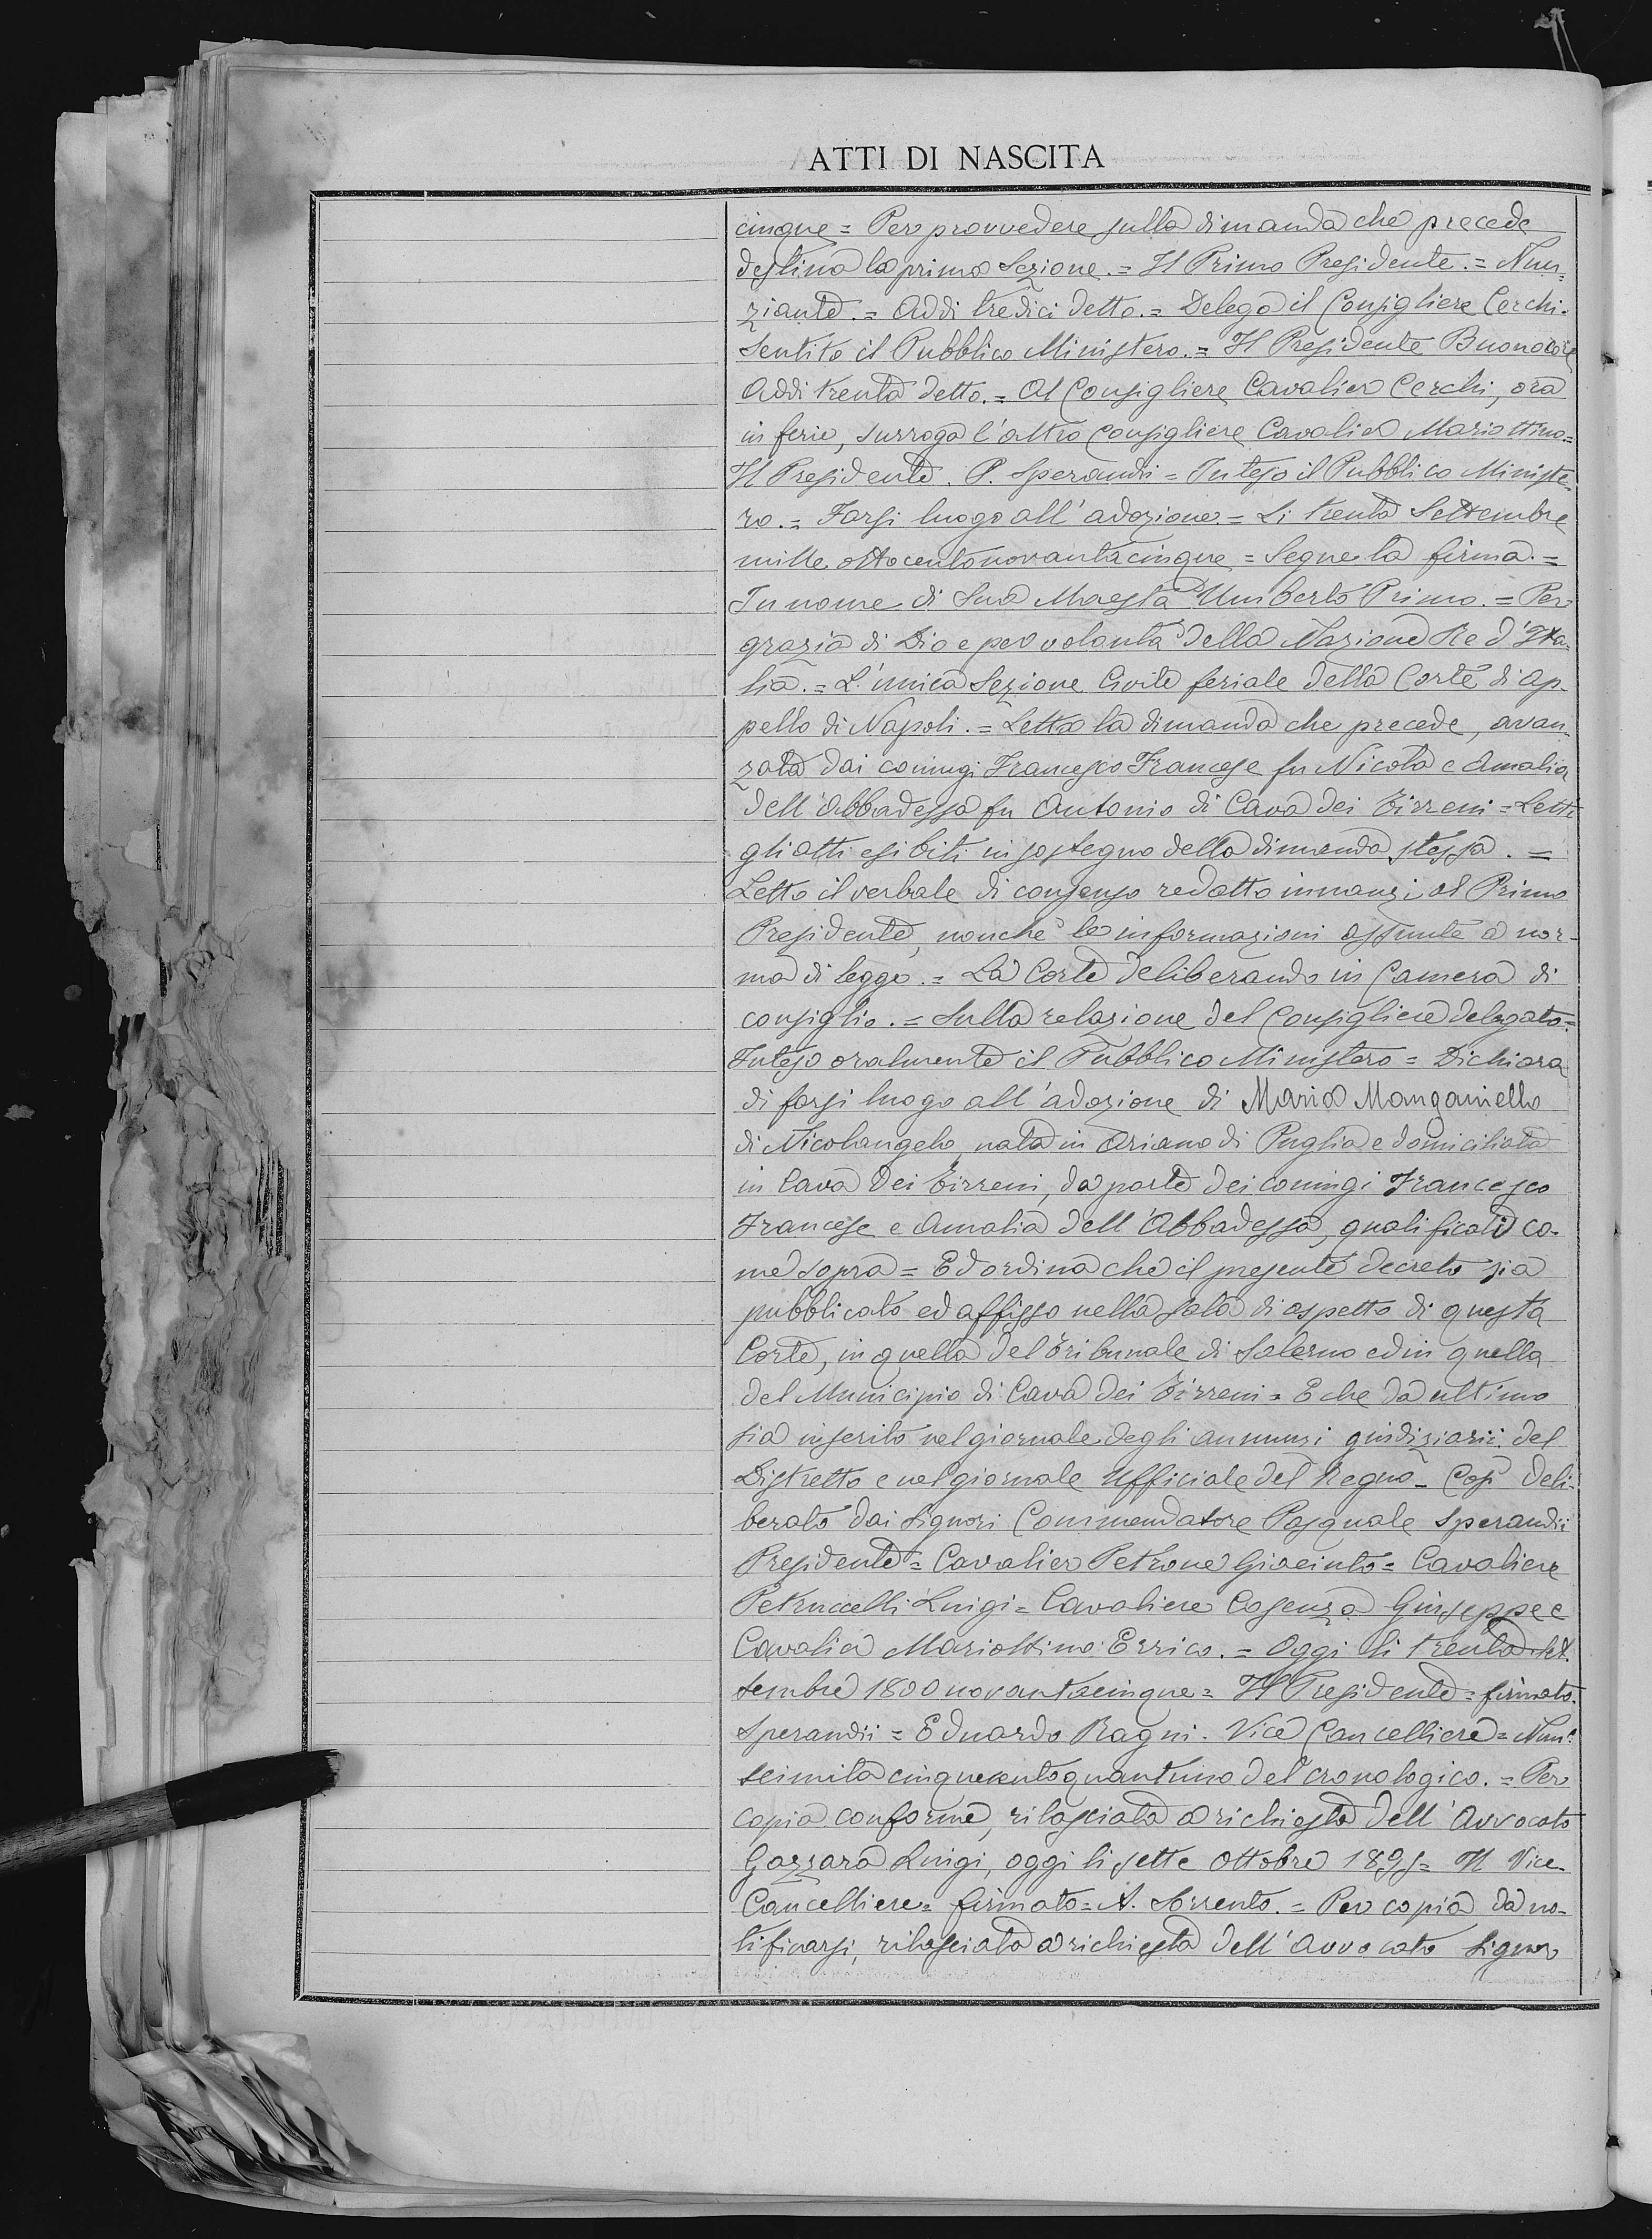 ATTI DI NASCITA
cinque = Per provvedere sulla dimanda che precede
destina la prima Sezione. = Il Primo Presidente. = Nun-
ziante. = Addi tredici detto. = Delega il Consigliere Cerchi.
Sentito il Pubblico Ministero. = Il Presidente Buonocore
Addi trenta detto. = Al Consigliere Cavalier Cerchi, ora
in ferie, surroga l'altro Consigliere Cavalier Mariottino =
Il Presidente. P. Sperandii = Inteso il Pubblico Ministe-
ro. = Farsi luogo all'adozione = Li trenta Settembre
mille ottocentonovantacinque = Segue la firma. =
In nome di Sua Maestà Umberto Primo. = Per
grazia di Dio e per volontà della Nazione Re d'Ita-
lia. = L'unica Sezione Civile feriale della Corte di ap-
pello di Napoli. = Letta la dimanda che precede, avan-
zata dai coniugi Francesco Francese fu Nicola e Amalia
dell'Abbadessa fu Antonio di Cava dei Tirreni = Letti
gli atti esibiti in sostegno della dimanda stessa. =
Letto il verbale di consenso redatto innanzi al Primo
Presidente, nonchè le informazioni assunte a nor-
ma di legge. = La Corte deliberando in Camera di
consiglio. = Sulla relazione del Consigliere delegato =
Inteso oralmente il Pubblico Ministero = Dichiara
di farsi luogo all'adozione di Maria Manganiello
di Nicolangelo, nata in Ariano di Puglia e domiciliata
in Cava dei Tirreni, da parte dei coniugi Francesco
Francese e Amalia dell'Abbadessa, qualificati co-
me sopra = Ed ordina che il presente decreto sia
pubblicato ed affisso nella sala di aspetto di questa
Corte, in quella del Tribunale di Salerno ed in quella
del Municipio di Cava dei Tirreni = E che da ultimo
sia inserito nel giornale degli annunzi giudiziarii del
Distretto e nel giornale Ufficiale del Regno - Così deli-
berato dai Signori Commendatore Pasquale Sperandii
Presidente = Cavalier Petrone Giacinto = Cavaliere
Petruccelli Luigi = Cavaliere Cosenza Giuseppe e
Cavalier Mariottino Errico. = Oggi li trenta Set-
tembre 1800novantacinque = Il Presidente = firmato.
Sperandii = Eduardo Ragni. Vice Cancelliere = Num:
seimila cinquecentoquantuno del cronologico. = Per
copia conforme, rilasciata a richiesta dell'Avvocato
Gazzara Luigi, oggi li sette Ottobre 1895 = Il Vice-
Cancelliere = firmato = A. Sorrento. = Per copia da no-
tificarsi, rilasciata a richiesta dell'Avvocato Signor